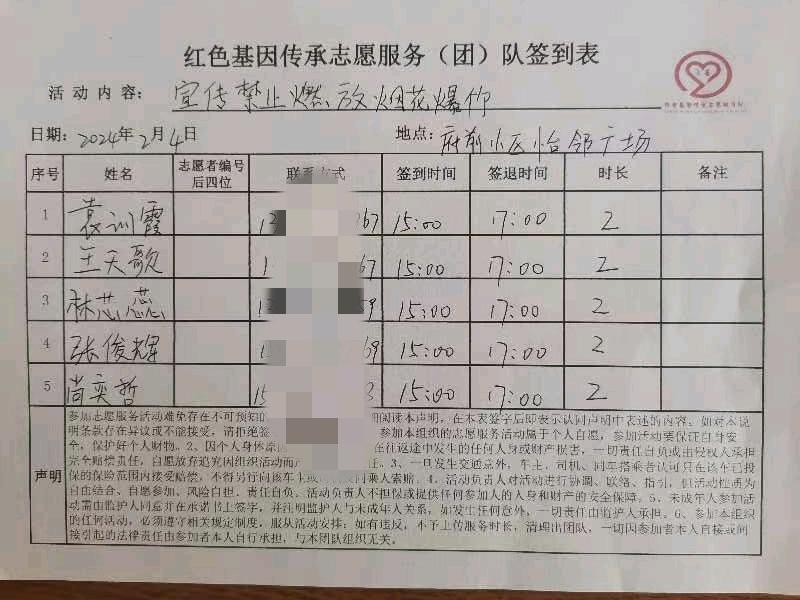 红色基因传承志愿服务（团）队签到表
活动内容： 宣传禁止燃放烟花爆竹
日期：2024年2月4日 地点：府前小区怡邻广场
序号 姓名 志愿者编号后四位 联系方式 签到时间 签退时间 时长 备注
1 袁训霞 67 15:00 17:00 2
2 王天歌 1 67 15:00 17:00 2
3 林芯蕊 59 15:00 17:00 2
4 张俊辉 69 15:00 17:00 2
5 尚奕哲 15 3 15:00 17:00 2
声明
参加志愿服务活动难免存在不可预知的 阅读本声明，在本表签字后即表示认同声明中表述的内容。如对本说
明条款存在异议或不能接受，请拒绝签 参加本组织的志愿服务活动属于个人自愿，参加活动要保证自身安
全，保护好个人财物。2、因个人身体原 在往返途中发生的任何人身或财产损害，一切责任自负或由侵权人承担
完全赔偿责任，自愿放弃追究因组织活动而产 3、一旦发生交通意外，车主、司机、同车搭乘者认可只在该车已投
保的保险范围内接受赔偿，不得另行向该车车主 同乘人索赔。4、活动负责人对活动进行协调、联络、指引，但活动性质为
自由结合、自愿参加、风险自担、责任自负、活动负责人不担保或提供任何参加人的人身和财产的安全保障。5、未成年人参加活
动需由监护人同意并在承诺书上签字，并注明监护人与未成年人关系，如发生任何意外，一切责任由监护人承担。6、参加本组织
的任何活动，必须遵守相关规定制度，服从活动安排；如有违反，不予上传服务时长，清理出团队，一切因参加者本人直接或间
接引起的法律责任由参加者本人自行承担，与本团队组织无关。